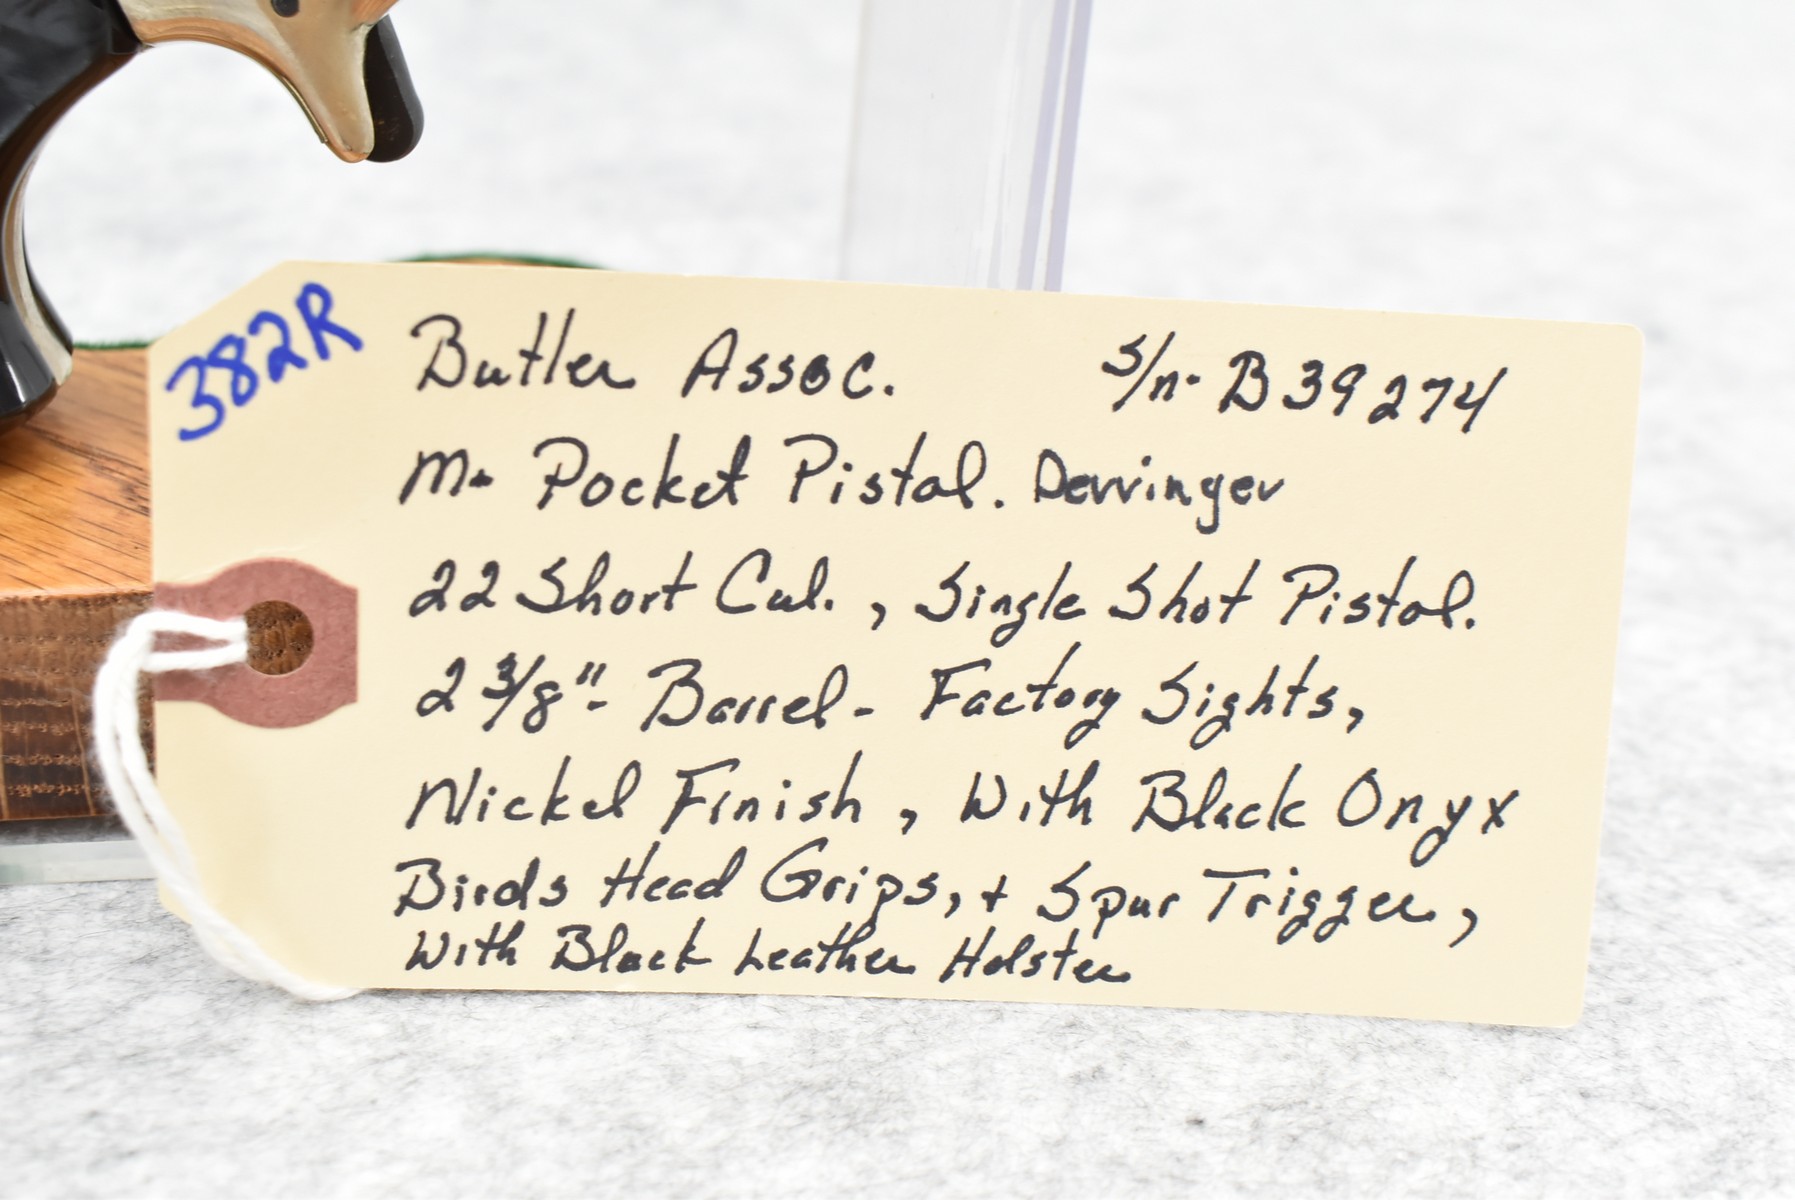 382R
Butler Assoc. S/n- B39274
M- Pocket Pistol. Derringer
22 Short Cal. , Single Shot Pistol.
2 3/8"- Barrel - Factory Sights,
Nickel Finish , With Black Onyx
Birds Head Grips, + Spur Trigger,
With Black Leather Holster